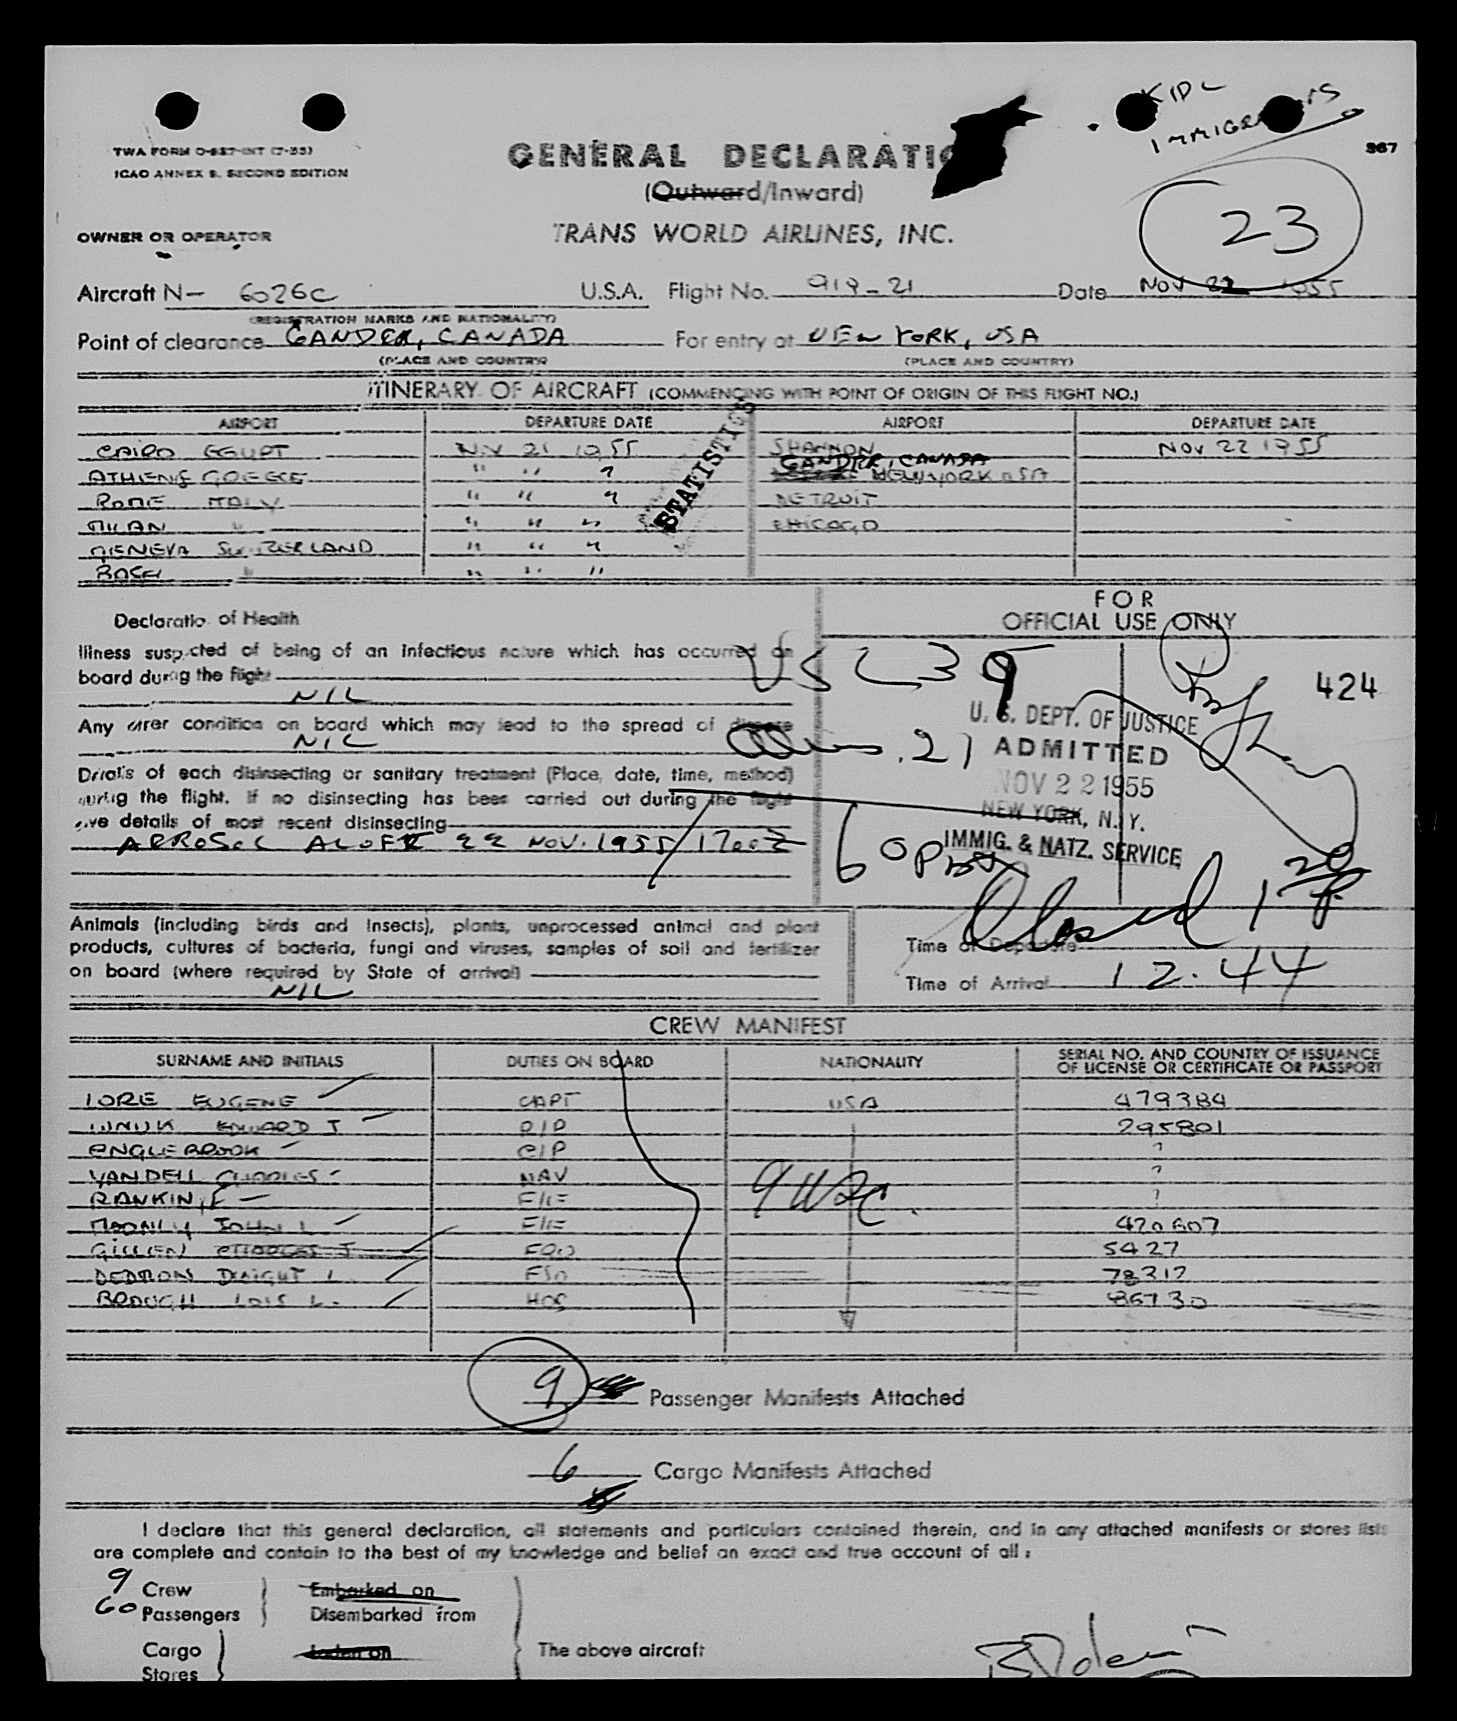 KIDL
TWA FORM O-837-INT (7-53)
ICAO ANNEX 9, SECOND EDITION
GENERAL DECLARATIO
IMMIGRA
367
(Outward/Inward)
23
OWNER OR OPERATOR
TRANS WORLD AIRLINES, INC.
Aircraft N- 6026C U.S.A. Flight No. 919-21 Date Nov 22 1955
(REGISTRATION MARKS AND NATIONALITY)
Point of clearance GANDER, CANADA For entry at NEW YORK, USA
(PLACE AND COUNTRY) (PLACE AND COUNTRY)
ITINERARY OF AIRCRAFT (COMMENCING WITH POINT OF ORIGIN OF THIS FLIGHT NO.)
AIRPORT DEPARTURE DATE AIRPORT DEPARTURE DATE
CAIRO EGYPT NOV 21 1955 SHANNON NOV 22 1955
GANDER, CANADA
ATHENS GREECE " " " NEW YORK USA
ROME ITALY " " " DETROIT
MILAN " " " " CHICAGO
GENEVA SWITZERLAND " " "
BASEL " " " "
STATISTICS
FOR
OFFICIAL USE ONLY
Declaratio of Health
Illness suspected of being of an infectious nature which has occurred on
board during the flight
NIL
USC 39
424
Any other condition on board which may lead to the spread of disease
NIL
21
U. S. DEPT. OF JUSTICE
ADMITTED
NOV 22 1955
NEW YORK, N. Y.
IMMIG. & NATZ. SERVICE
Details of each disinsecting or sanitary treatment (Place, date, time, method)
during the flight. If no disinsecting has been carried out during the flight
give details of most recent disinsecting
AEROSOL ALOFT 22 NOV. 1955 / 1700Z
60
Closed 1 20 P
Animals (including birds and insects), plants, unprocessed animal and plant
products, cultures of bacteria, fungi and viruses, samples of soil and fertilizer
on board (where required by State of arrival)
NIL
Time of Departure
Time of Arrival 12.44
CREW MANIFEST
SURNAME AND INITIALS DUTIES ON BOARD NATIONALITY SERIAL NO. AND COUNTRY OF ISSUANCE
OF LICENSE OR CERTIFICATE OR PASSPORT
LORE EUGENE CAPT USA 479384
EDWARD J 295801
ENGLEBROOK ?
VANDELL CHARLES NAV ?
RANKIN, F F/E ?
JOHN L F/E
GILLEN CHARLES J 5427
DWIGHT
BROUGH LOIS L. HOS 86730
9 Passenger Manifests Attached
6 Cargo Manifests Attached
I declare that this general declaration, all statements and particulars contained therein, and in any attached manifests or stores lists
are complete and contain to the best of my knowledge and belief an exact and true account of all:
9 Crew Embarked on
60 Passengers Disembarked from
Cargo Laden on The above aircraft
Stores